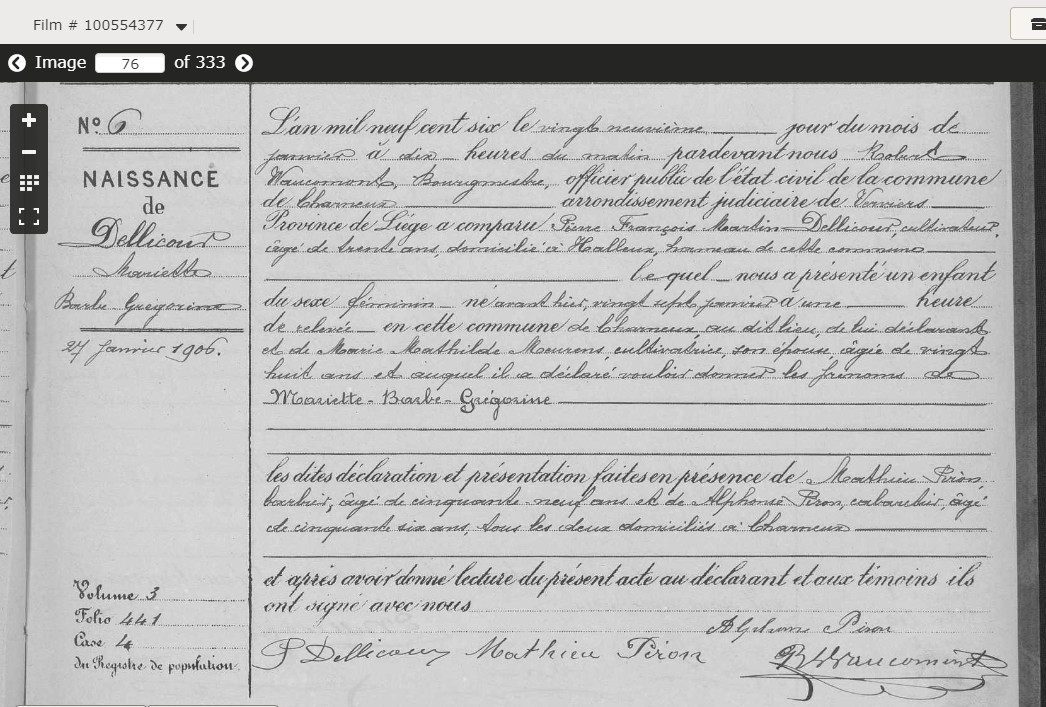 Film # 100554377
Image 76 of 333
N° 6
NAISSANCE
de
Dellicour
Mariette
Barbe Grégorine
27 Janvier 1906.
Volume 3
Folio 441
Case 4
du Registre de population.
L'an mil neuf cent six le vingt neuvième jour du mois de
janvier à dix heures du matin pardevant nous Robert
Waucomont, Bourgmestre, officier public de l'état civil de la commune
de Charneux arrondissement judiciaire de Verviers
Province de Liége a comparu Pierre François Martin Dellicour, cultivateur,
âgé de trente ans, domicilié à Halleux, hameau de cette commune
lequel nous a présenté un enfant
du sexe féminin né avant hier, vingt sept janvier à une heure
de relevée en cette commune de Charneux, au dit lieu, de lui déclarant
et de Marie Mathilde Meurens, cultivatrice, son épouse âgée de vingt
huit ans et auquel il a déclaré vouloir donner les prénoms de
Mariette - Barbe - Grégorine
les dites déclaration et présentation faites en présence de Mathieu Piron,
barbier, âgé de cinquante neuf ans et de Alphonse Piron, cabaretier, âgé
de cinquante six ans, tous les deux domiciliés à Charneux
et après avoir donné lecture du présent acte au déclarant et aux témoins ils
ont signé avec nous
Alphonse Piron
P Dellicour Mathieu Piron R Waucomont